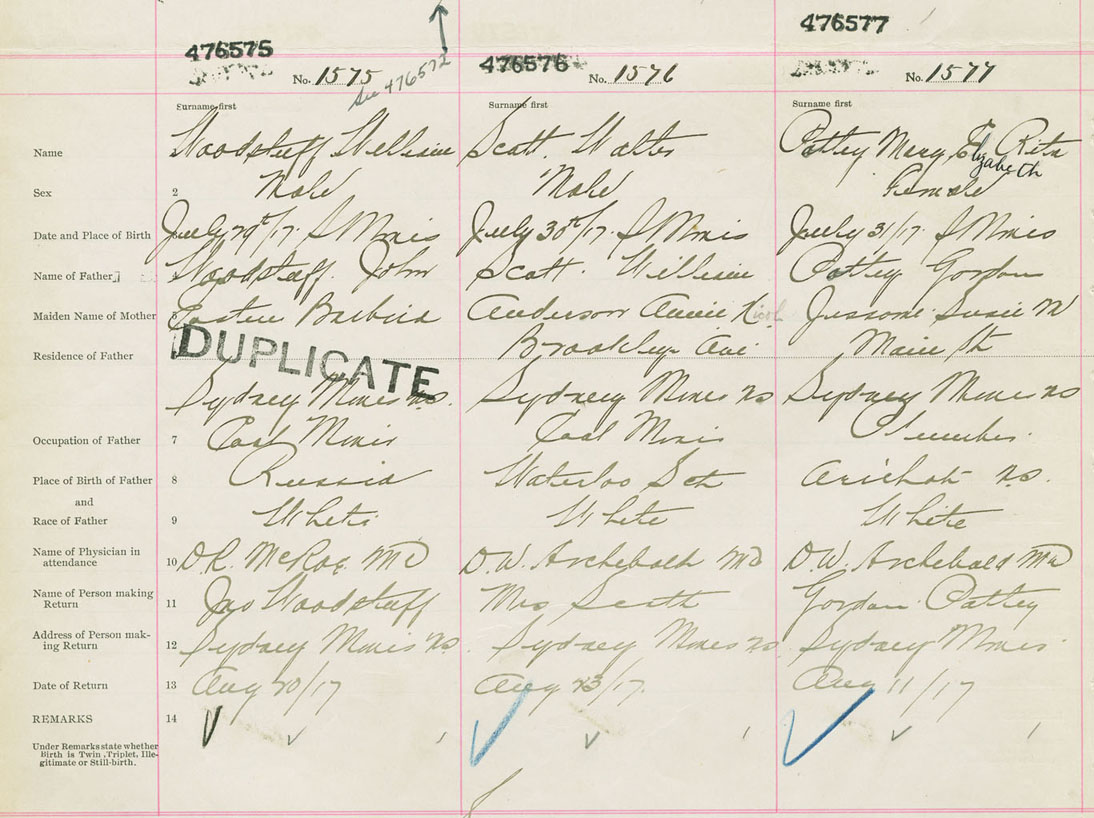 476575
476576
476577
No. 1575
See 476572
No. 1576
No. 1577
Surname first
Surname first
Surname first
Name
Woodstuff William
Scott Walter
Pottey Mary E Rita
Elizabeth
Sex 2 Male Male Female
Date and Place of Birth 3 July 29th/17. S Mines July 30th/17. S Mines July 31/17. S Mines
Name of Father 4 Woodstuff. John Scott. William Pottey Gordon
Maiden Name of Mother 5 Barbira Anderson Annie Jessome Susie M
DUPLICATE
Residence of Father Brooklyn Ave Main St
Sydney Mines NS. Sydney Mines NS Sydney Mines NS
Occupation of Father 7 Coal Miner Coal Miner Plumber.
Place of Birth of Father 8 Russia Waterloo Sct Arichat NS.
and
Race of Father 9 White White White
Name of Physician in
attendance 10 D.R. McRae MD D.W. Archebald MD D.W. Archebald MD
Name of Person making
Return 11 Jno Woodstuff Mrs Scott Gordon Pottey
Address of Person mak-
ing Return 12 Sydney Mines NS Sydney Mines NS Sydney Mines
Date of Return 13 Aug 20/17 Aug 23/17. Aug 11/17
REMARKS 14
Under Remarks state whether
Birth is Twin, Triplet, Ille-
gitimate or Still-birth.